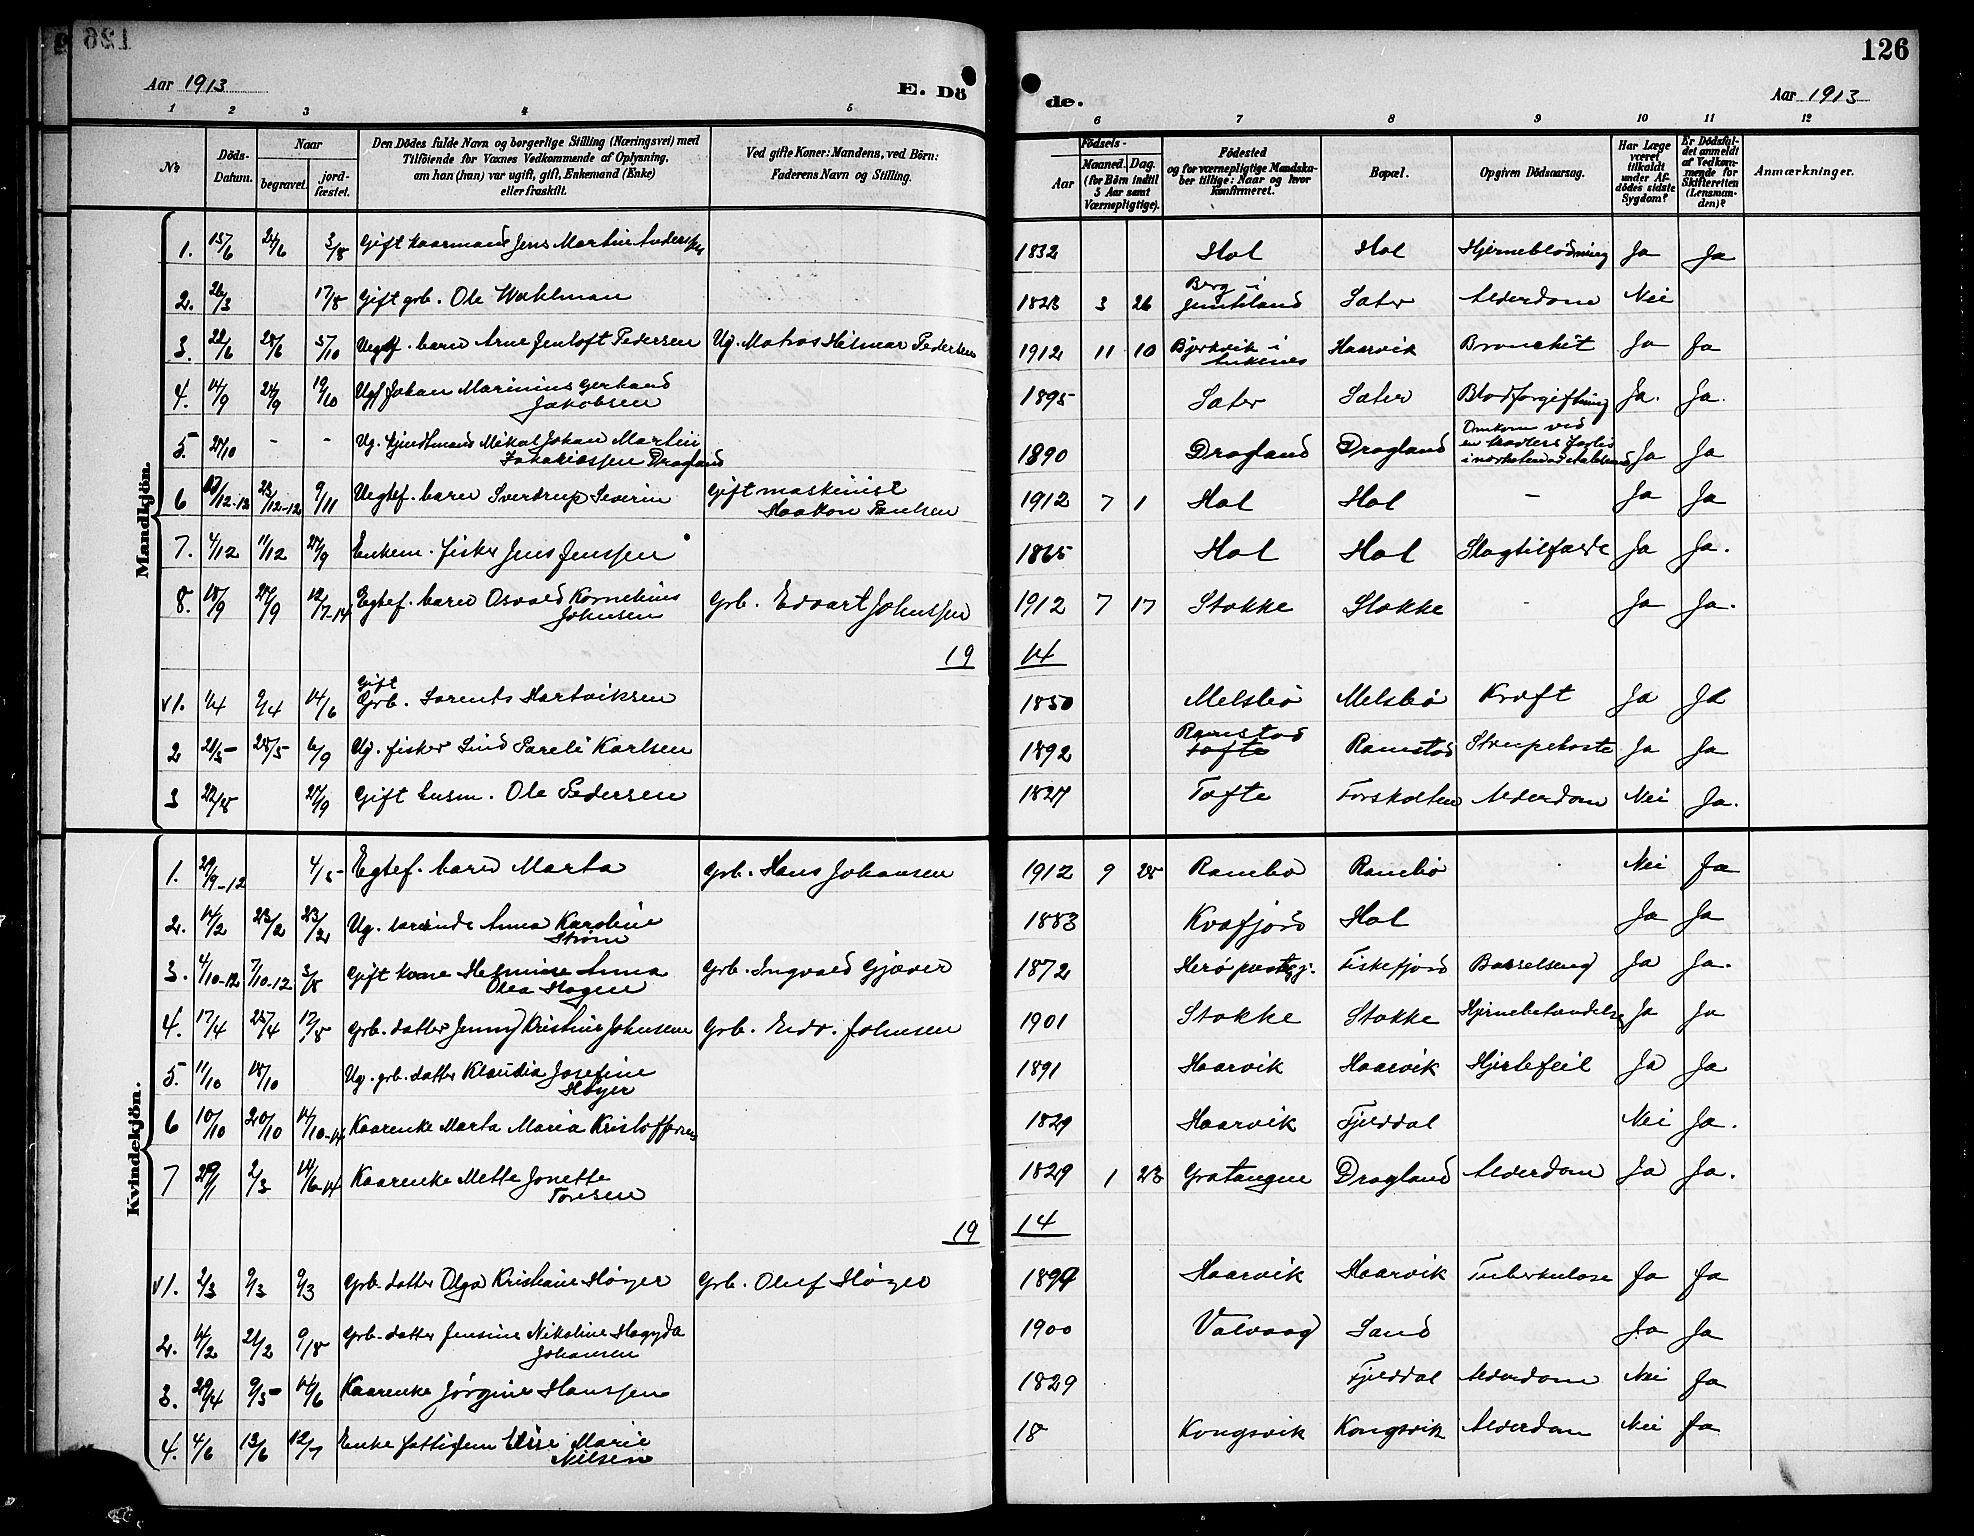 126
Aar 1913
E. Dö
de.
Aar 1913
126
1 2 3 4 5 6 7 8 9 10 11 12
No
Döds-Datum.
Naar
begravet.
jord-fæstet.
Den Dödes fulde Navn og borgerlige Stilling (Næringsvei) med
Tilföiende for Voxnes Vedkommende af Oplysning,
om han (hun) var ugift, gift, Enkemand (Enke)
eller fraskilt.
Ved gifte Koner: Mandens, ved Börn:
Faderens Navn og Stilling.
Födsels-
Aar
Maaned. Dag.
(for Börn indtil
5 Aar samt
Værnepligtige).
Födested
og for værnepligtige Mandska-
ber tillige: Naar og hvor
konfirmeret.
Bopæl.
Opgiven Dödsaarsag.
Har Læge
været
tilkaldt
under Af-
dödes sidste
Sygdom?
Er Dödsfal-
det anmeldt
af Vedkom-
mende for
Skifteretten
(Lensman-
den)?
Anmærkninger.
Mandkjön.
1. 15/6 24/6 3/8 Gift kaarmand Jens Martin Anderssen 1832 Hol Hol Hjerneblödning Ja Ja
2. 26/3 17/8 Gift grb. Ole Wahlman 1823 3 26 Berg i
Jemtland Sater Alderdom Nei
3. 22/6 28/6 5/10 Uegtef. barn Arne Jentoft Pedersen Ug. Matros Hilmar Pedersen 1912 11 10 Bjerkvik i
Ankenes Haarvik Bronchit Ja Ja
4. 14/9 24/9 19/10 Ugf Johan Marinius Gerhard
Jakobsen 1895 Sater Sater Blodforgiftning Ja. Ja.
5. 27/10 - - Ug. Mikal Johan Martin
Zakariassen Dragland 1890 Dragland Dragland Omkom ved
en trawlers forlis
Ja Ja
6 /12-12 23/12-12 9/11 Uegtef. barn Sverdrup Severin Gift maskinist
Haakon Paulsen 1912 7 1 Hol Hol - Ja Ja
7. 4/12 11/12 27/9 Enkem. fisker Jens Jenssen 1865 Hol Hol Slagtilfælde Ja Ja.
8. 18/9 27/9 12/7-14 Egtef. barn Osvald Kornelius
Johnsen Grb. Edvart Johnssen 1912 7 17 Stokke Stokke - Ja Ja.
19 14
v1. 1/4 9/4 14/6 Gift
Grb. Lorents Hartviksen 1850 Melsbö Melsbö Kræft Ja Ja
2 21/5 28/5 6/9 Ug. fisker Lind Pareli Karlsen 1892 Ramstad
Tofte Ramstad Strupehoste Ja Ja
3 22/8 27/9 Gift husm. Ole Pedersen 1827 Tofte Forsholten Alderdom Nei Ja.
Kvindekjön.
1. 29/9-12 4/5 Egtef. barn Marta Grb. Hans Johansen 1912 9 25 Rambo Rambö Nei Ja
2. 14/2 23/2 23/2 Ug. lærerinde Anna Karoline
Ström 1883 Kvæfjord Hol Ja Ja
3. 4/10-12 7/10-12 3/8 Gift kone Helmine Anna
Olea Hagen Grb. Ingvald Gjæver 1872 Herö præstegj. Fiskefjord Barselseng Ja Ja.
4. 17/4 25/4 17/8 Grb. datter Jenny Kristine Johnsen Grb. Edv. Johnsen 1901 Stokke Stokke Hjernebetændelse Ja Ja
5. 11/10 18/10 Ug. grb. datter Klaudia Josefine
Höyer 1891 Haarvik Haarvik Hjertefeil Ja Ja
6 10/10 20/10 14/10-14 Kaarenke Marta Maria Kristoffersen 1829 Haarvik Fjelddal Nei Ja.
7 29/1 2/3 18/6-14 Kaarenke Mette Jonette
Toresen 1829 1 23 Gratangen Dragland Alderdom Ja Ja.
19 14
v1. 2/3 9/3 9/3 Grb. datter Olga Kristiane Höyer Grb. Oluf Höyer 1899 Haarvik Haarvik Tuberkulose Ja Ja
2. 14/2 21/2 9/8 Grb. datter Jensine Nikoline Hagyda
Johansen 1900 Valvaag Sand Ja Ja
3. 29/4 9/5 14/6 Kaarenke Jörgine Hanssen 1829 Fjelddal Alderdom Nei Ja
4. 4/6 13/6 12/7 Enke fattiglem Elise Marie
Nilsen 18 Kongsvik Kongsvik Alderdom Nei Ja